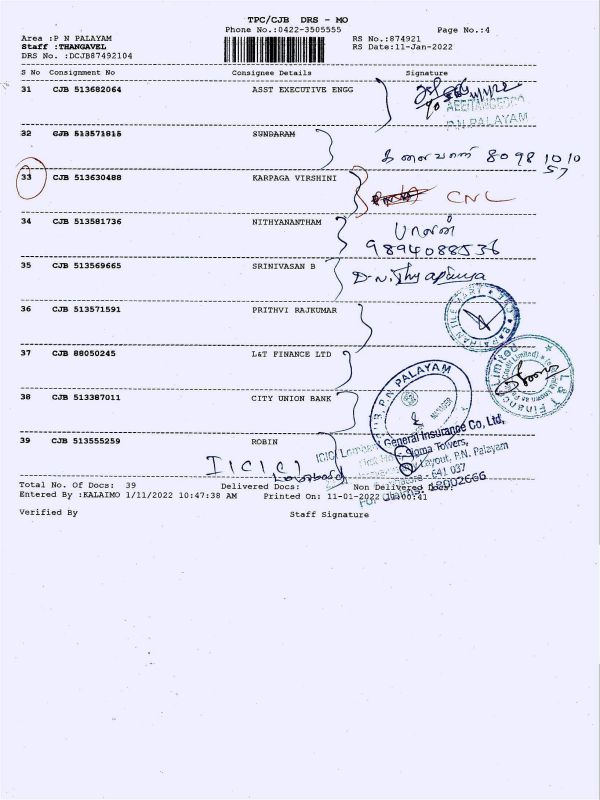 TPC/CJB DRS - MO
Phone No.:0422-3505555
Page No.:4
Area :P N PALAYAM
RS No.:874921
Staff :THANGAVEL
RS Date:11-Jan-2022
DRS No. :DCJB87492104
S No Consignment No Consignee Details Signature
31 CJB 513682064 ASST EXECUTIVE ENGG
P.N.PALAYAM
32 CJB 513571815 SUNDARAM
8098 1010
57
33 CJB 513630488 KARPAGA VIRSHINI
CNL
34 CJB 513581736 NITHYANANTHAM
பாலன்
9894088536
35 CJB 513569665 SRINIVASAN B
36 CJB 513571591 PRITHVI RAJKUMAR
37 CJB 88050245 L&T FINANCE LTD
L & T Finance Limited
38 CJB 513387011 CITY UNION BANK
P.N. PALAYAM
MANAGER
39 CJB 513555259 ROBIN
ICICI Lombard General Insurance Co, Ltd,
Towers,
Layout, P.N. Palayam
- 641 037
ICICI
Lombard
Total No. Of Docs: 39 Delivered Docs: Non Delivered Docs:
Entered By :KALAIMO 1/11/2022 10:47:38 AM Printed On: 11-01-2022 11:00:41
Verified By Staff Signature